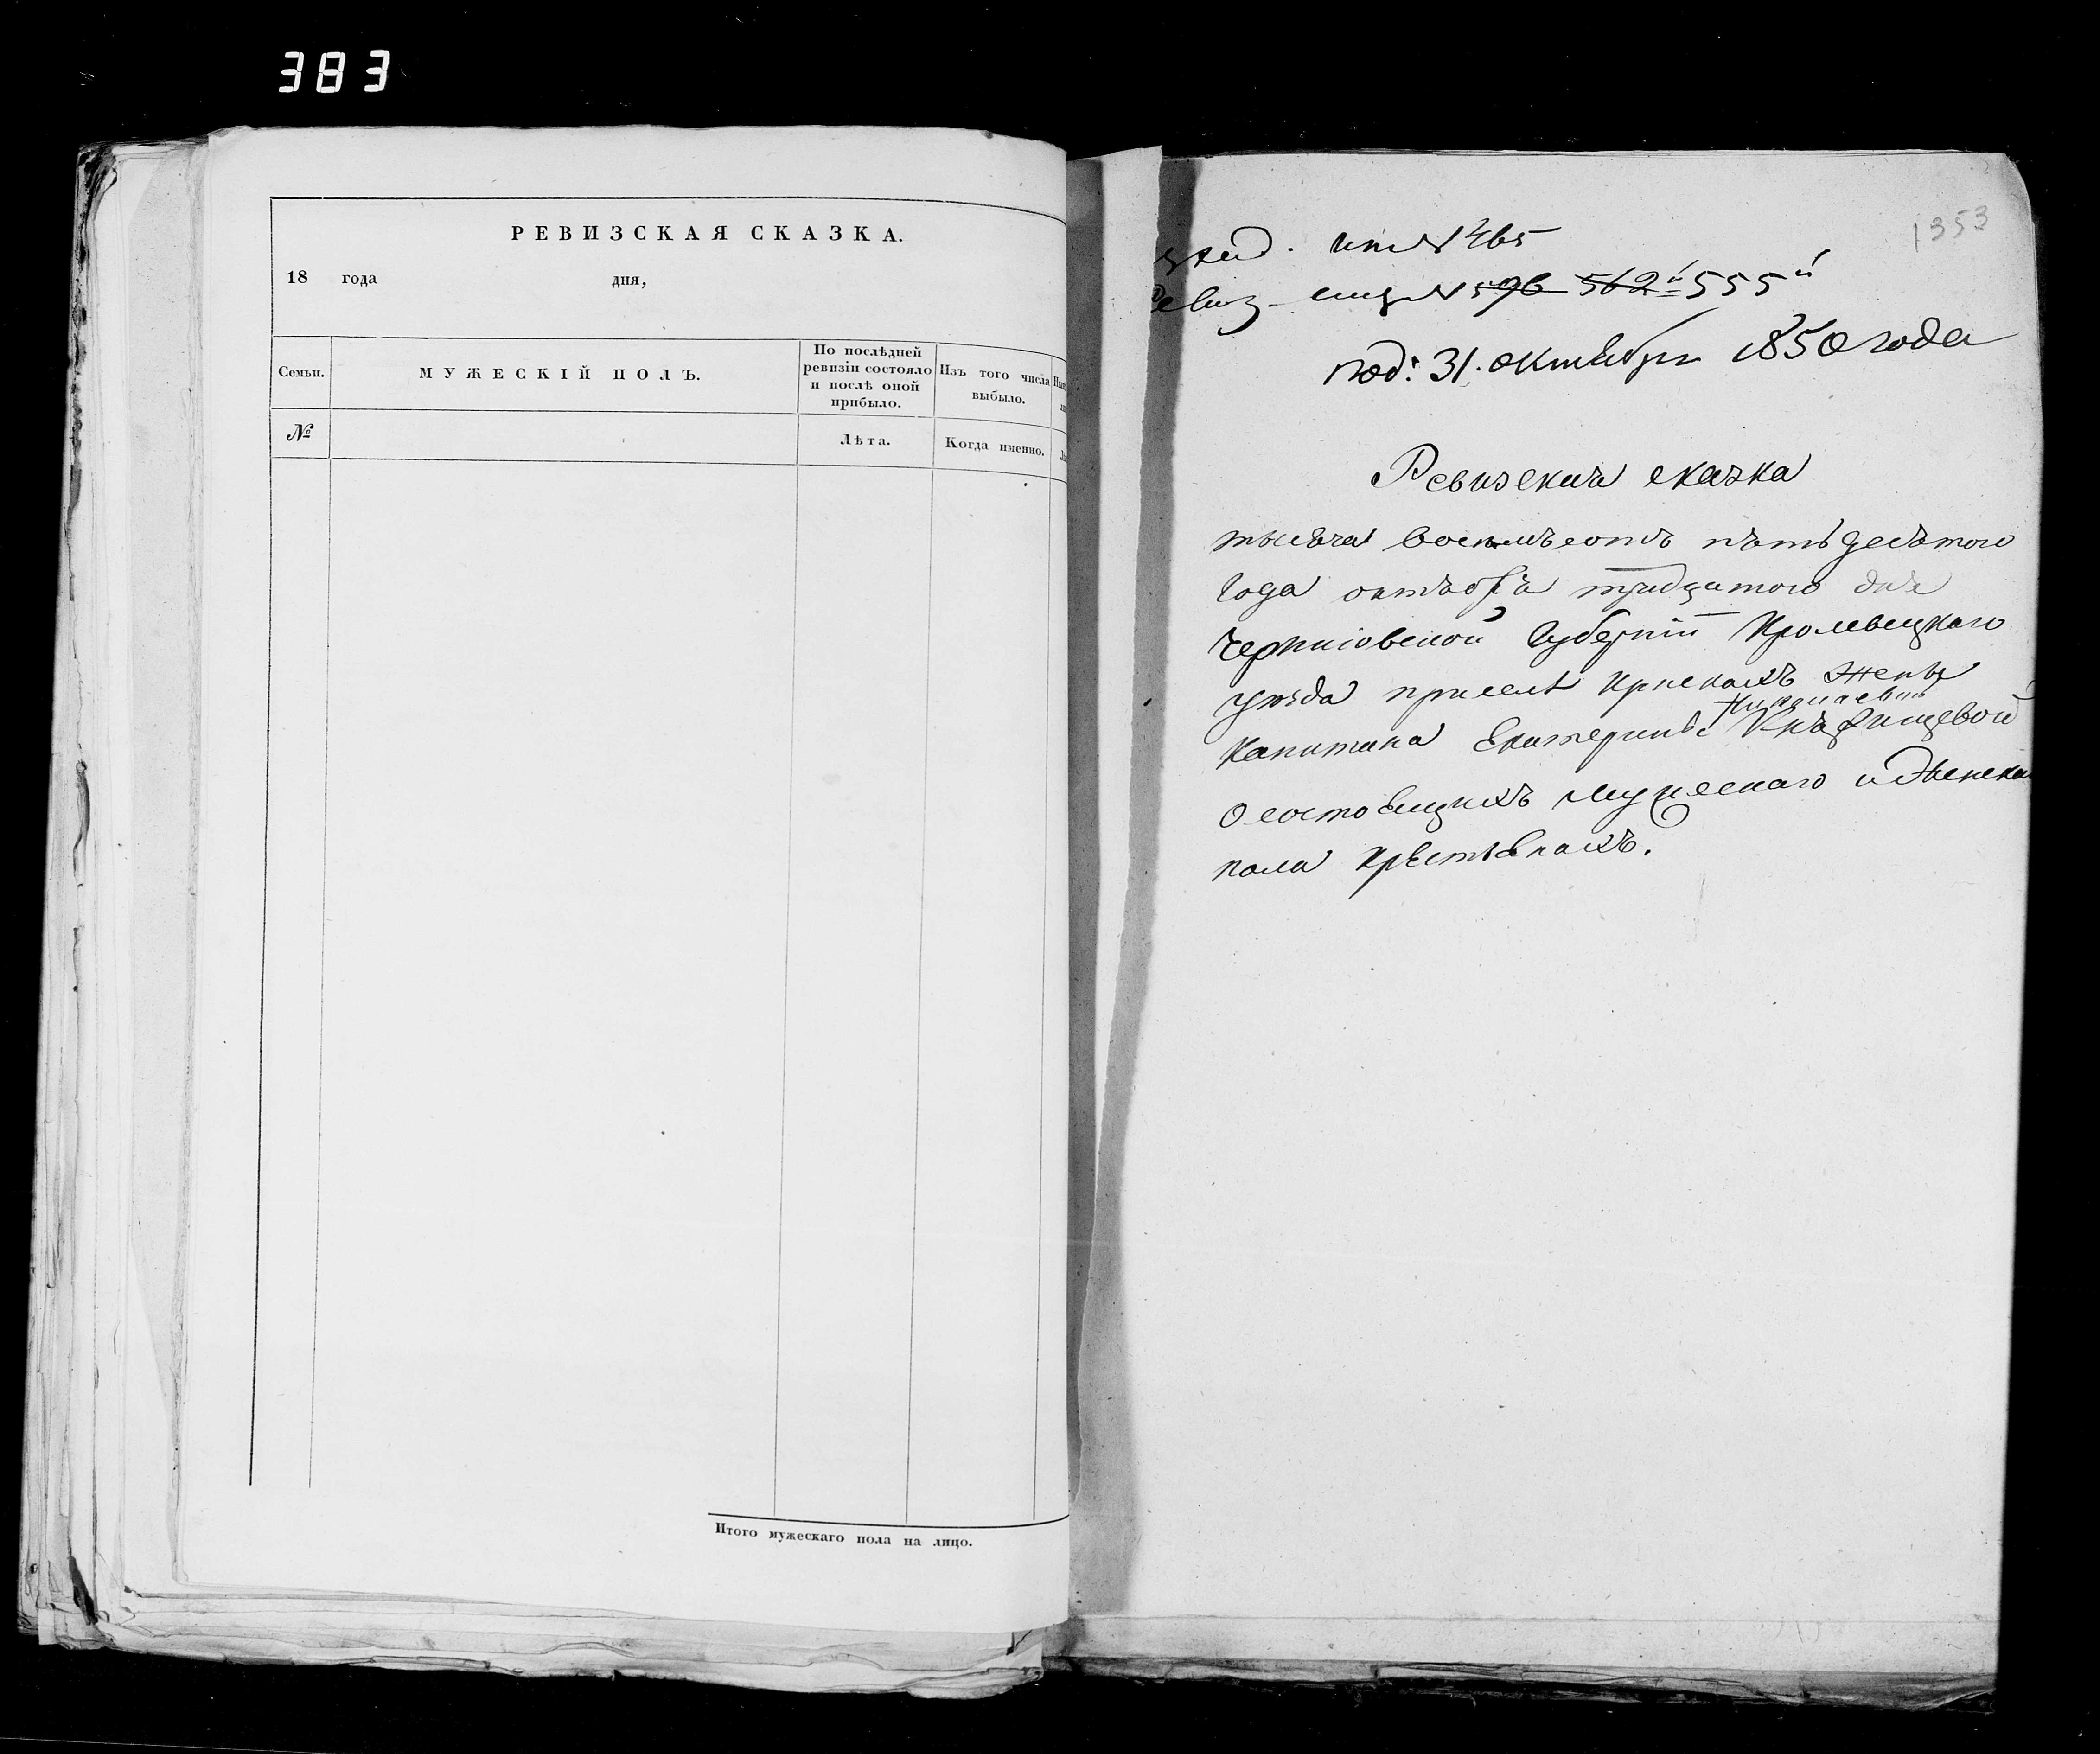 383
РЕВИЗСКАЯ СКАЗКА.
18 года дня,
Семьи.
МУЖЕСКІЙ ПОЛЪ.
По послѣдней
ревизіи состояло
и послѣ оной
прибыло.
Изъ того числа
выбыло.
№
Лѣта.
Когда именно.
Итого мужескаго пола на лицо.
1353
№ 465
№ 596 562й 555й
под: 31. октября 1850 года
Ревизская сказка
тысяча восемьсотъ пятьдесятого
года октября тридцатого дня
Черниговской Губерніи Кролевецкаго
уезда жены
Николаевны
капитана Екатерины
о состоящихъ мужескаго и женска
пола крестьянахъ.